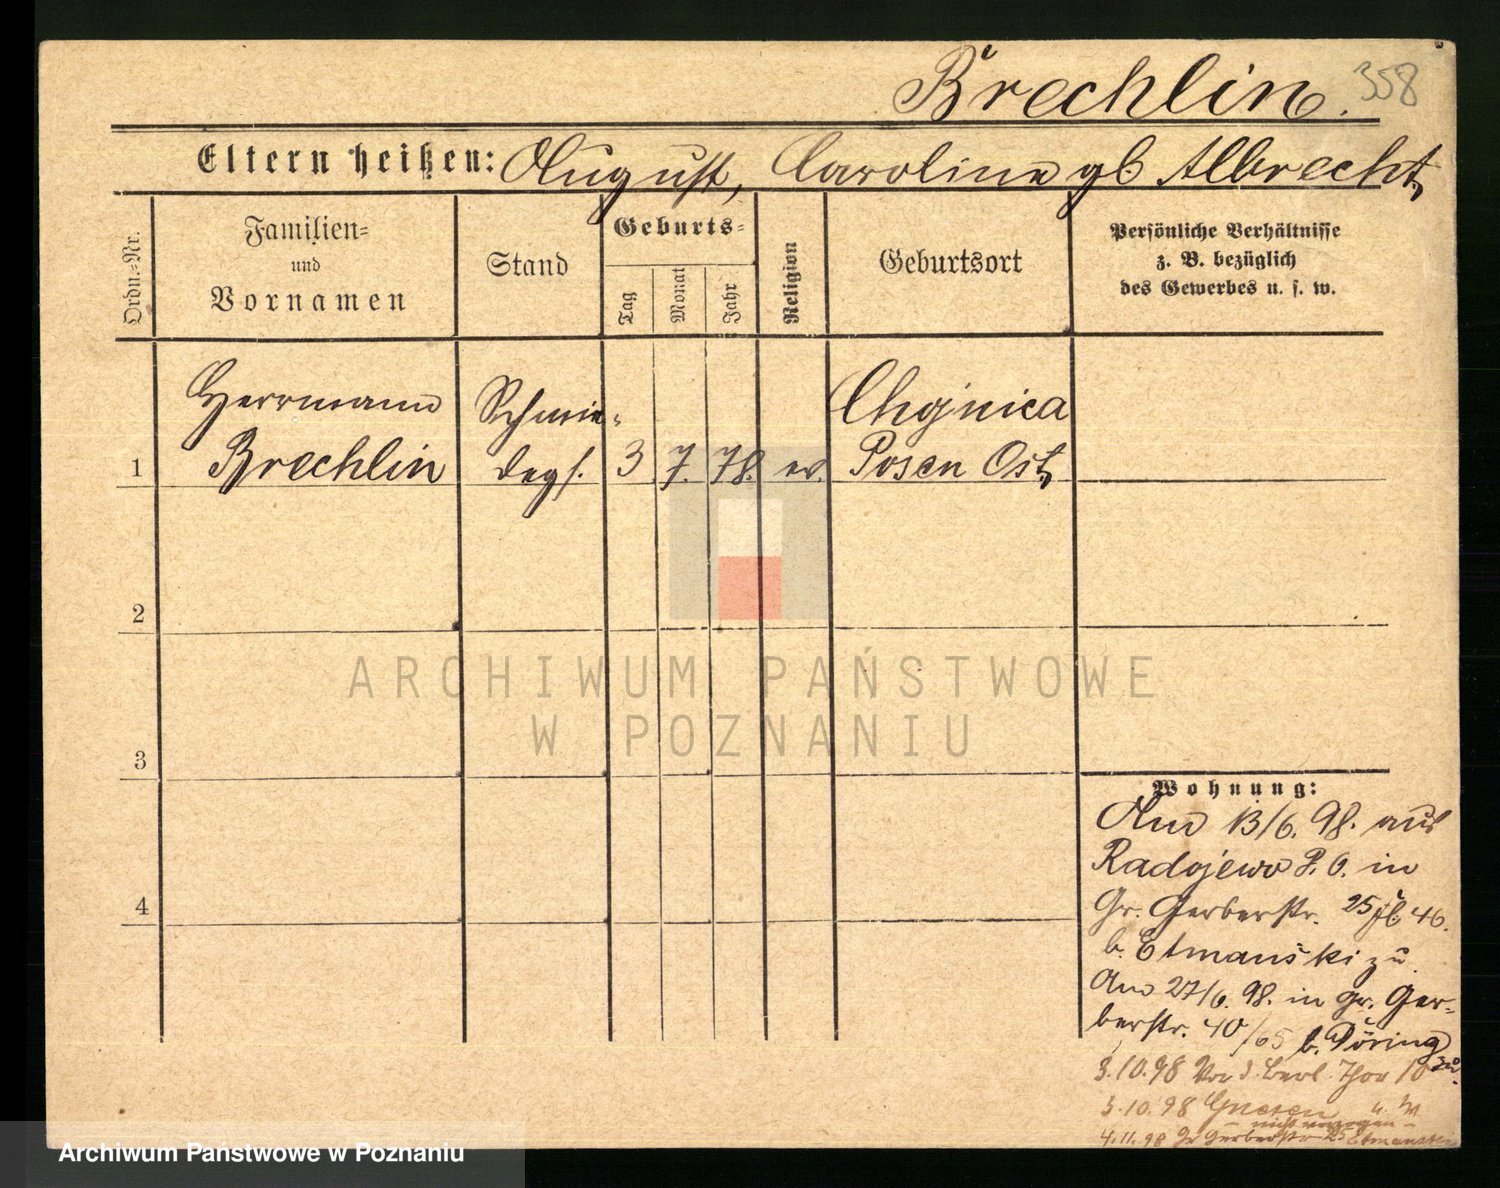 Brechlin.
358
Eltern heißen: August, Caroline gb Albrecht,
Ordn.=Nr.
Familien=
und
Vornamen
Stand
Geburts=
Tag
Monat
Jahr
Religion
Geburtsort
Persönliche Verhältnisse
z. B. bezüglich
des Gewerbes u. s. w.
Herrmann
Brechlin
Schmie-
degs.
3 7. 78. ev.
Chojnica
Posen Ost,
1
2
3
4
Wohnung:
Am 13/6. 98. aus
Radojewo P. O. in
Gr. Gerberstr. 25 46.
b. Etmanski zu
Am 27/6. 98. in Gr. Ger-
berstr. 40/65 b. Döring
zu.
3.10.98 Vor d. Berl. Thor 10
3.10.98 Gnesen
nicht verzogen
4.11.98 Gr Gerberstr 25 Etmanski
ARCHIWUM PAŃSTWOWE
W POZNANIU
Archiwum Państwowe w Poznaniu